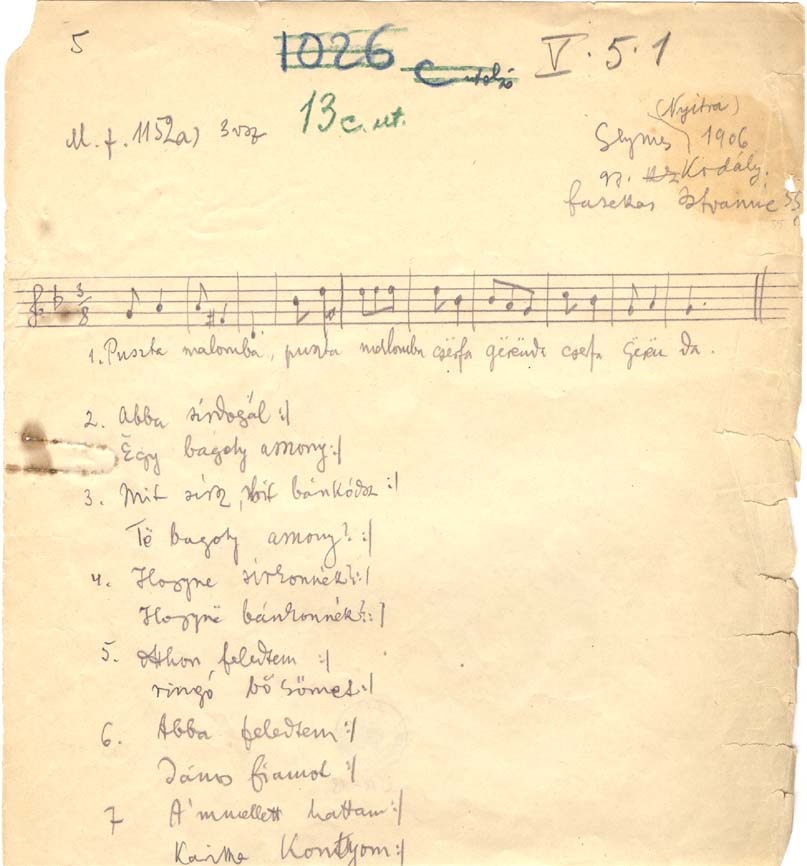 5
1026 C utolsó
V.5.1
13 c. ut.
M. f. 1152a) 3 vsz
(Nyitra)
Gymes 1906
gy. Kodály.
fazekas Istvánné 55
3/8
1. Puszta malomba, puszta malomba csërfa gërënda csefa gërën da.
2. Abba sirdogál :/
Ëgy bagoly asszony:/
3. Mit sirsz, mit bánkódsz :/
Të bagoly asszony? :/
4. Hogyne sirkonnék?:/
Hogynë bánkonnék?:/
5. Othon feledtem :/
ringó bőcsömet:/
6. Abba feledtem:/
János fiamot :/
7 A'mmellett hattam:/
Karika Kontyom:/